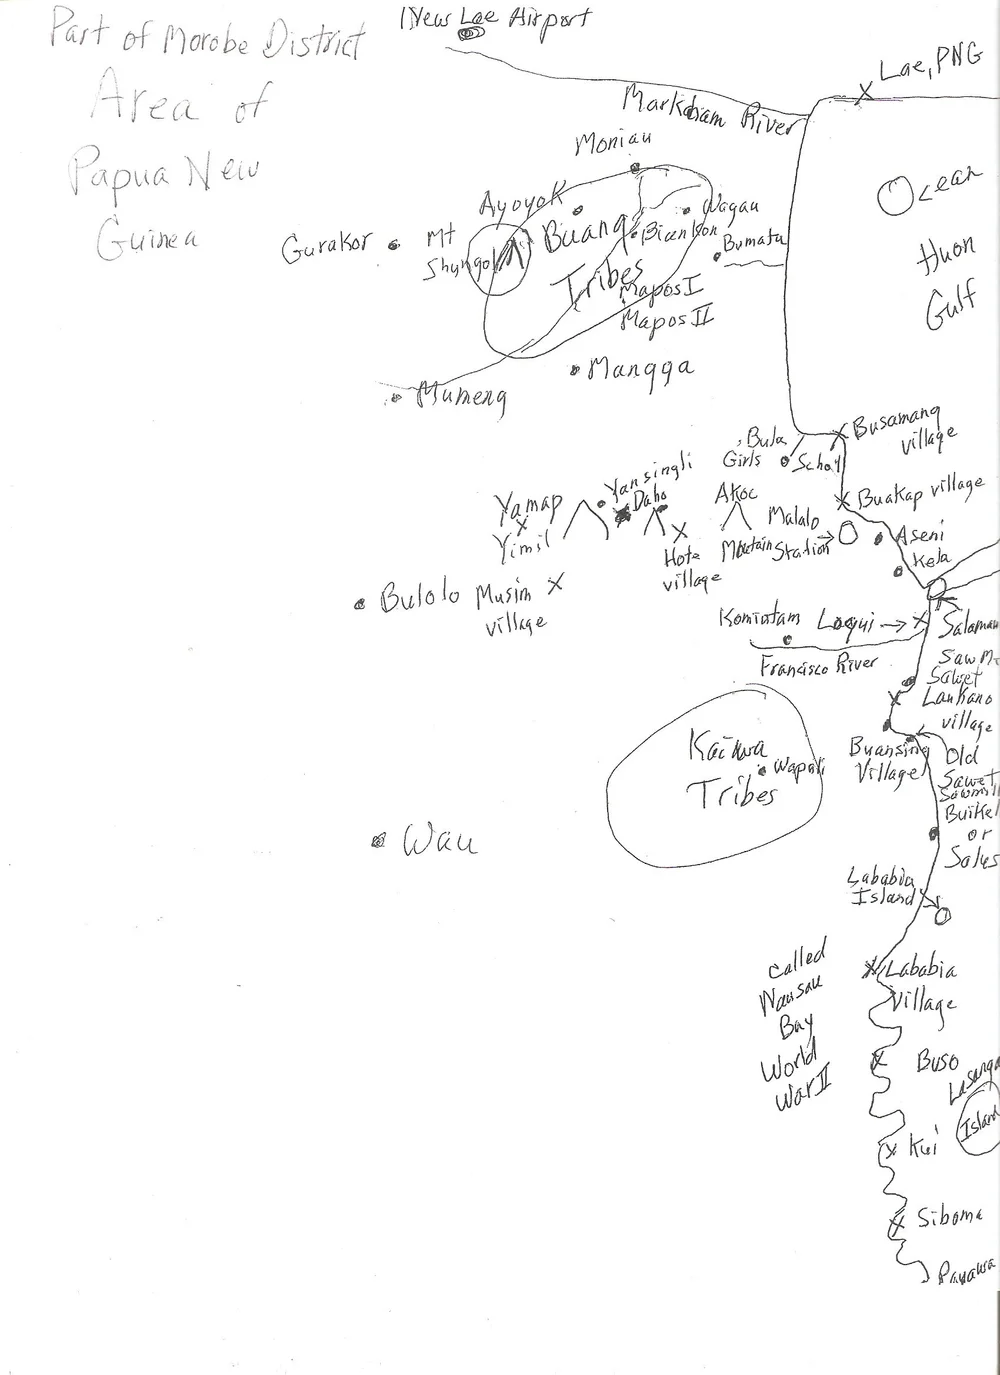 Part of Morobe District
Area of
Papua New
Guinea
New Lae Airport
Lae, PNG
Markham River
Ocean
Huon
Gulf
Moniau
Ayoyok
Wagau
Buang
Tribes
Bumatu
Gurakor
Mt
Shungol
Mapos I
Mapos II
Mangga
Mumeng
Busamang
village
Bula
Girls
School
Buakap village
Yansingli
Daho
Yamap
Yimil
Akoc
Mountain
Malalo
Station
Aseni
Kela
Hote
village
Bulolo
Musim
village
Komiatam
Loqui
Salamau
Francisco River
Saw Mi
Sawet
Lankano
village
Buansing
Village
Old
Sawet
Sawmill
Buikel
or
Salus
Kaiwa
Tribes
Wapali
Wau
Lababia
Island
Lababia
Village
called
Nausau
Bay
World
War II
Buso
Lasanga
Island
Kui
Siboma
Paiawa